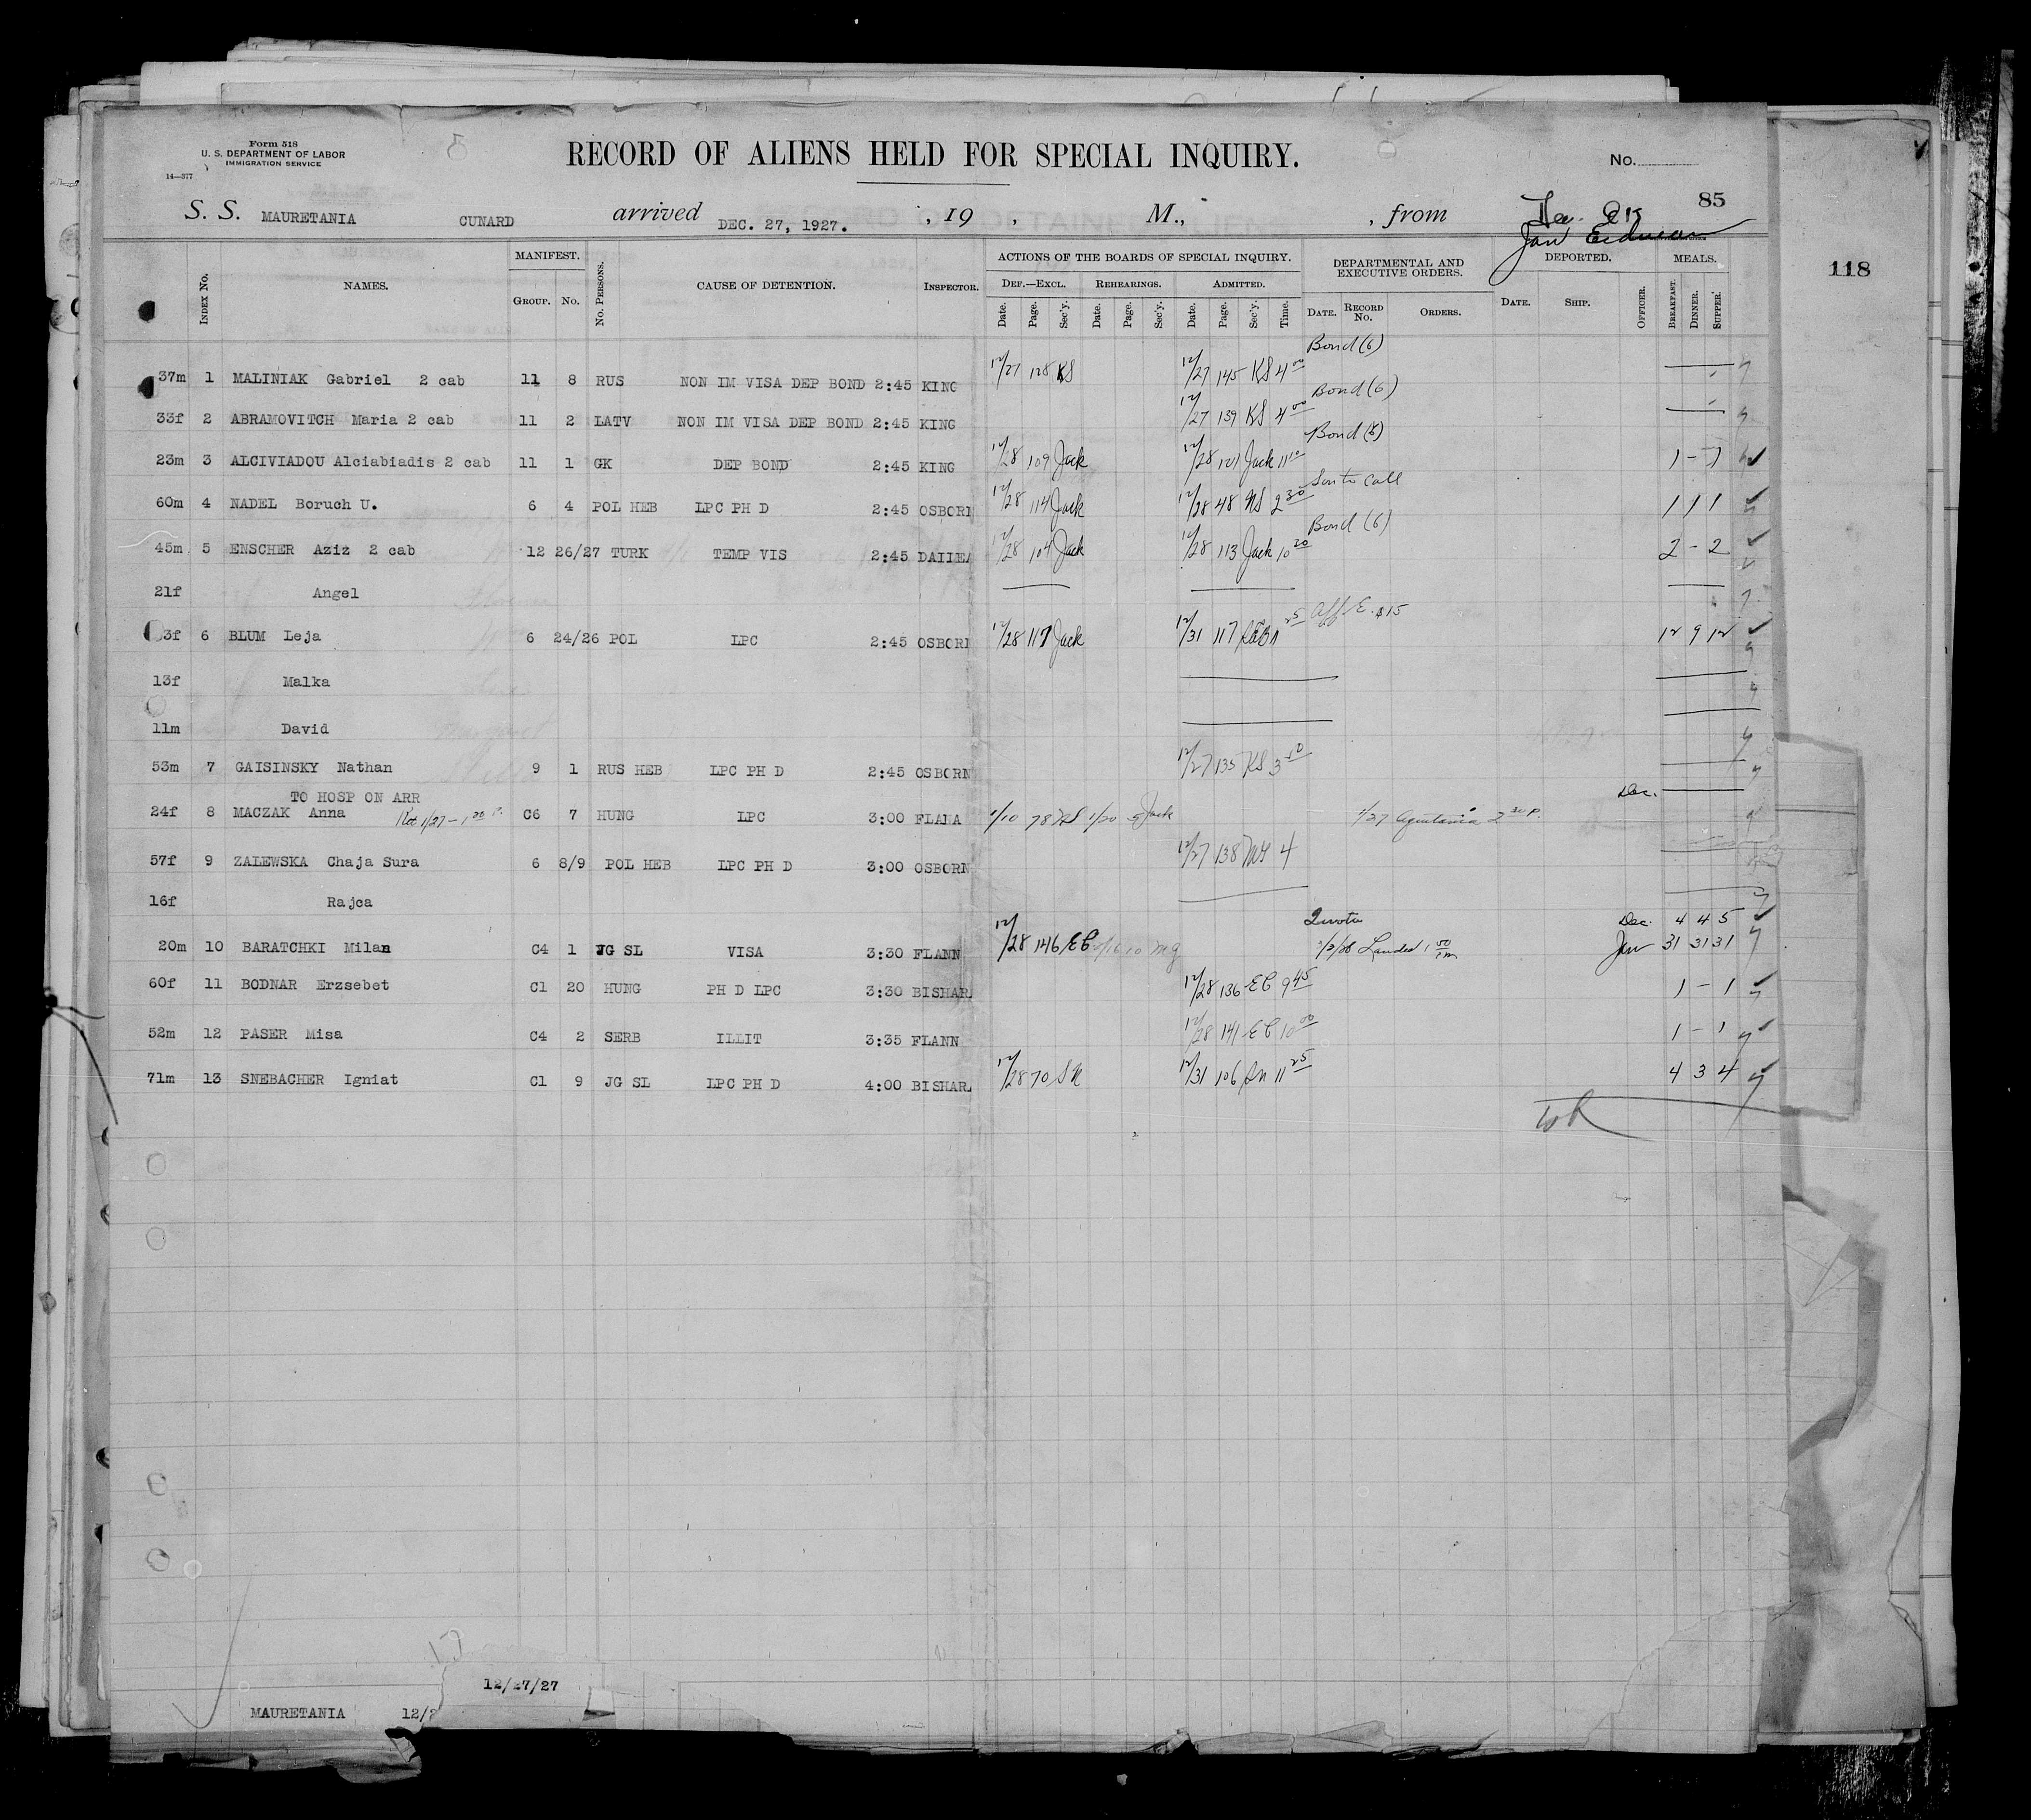 Form 518
U. S. DEPARTMENT OF LABOR
IMMIGRATION SERVICE
14—377
RECORD OF ALIENS HELD FOR SPECIAL INQUIRY.
No.
85
118
S. S. MAURETANIA CUNARD arrived DEC. 27, 1927. , 19 , M., , from
INDEX No. NAMES. MANIFEST. GROUP. No. No. PERSONS. CAUSE OF DETENTION. INSPECTOR. ACTIONS OF THE BOARDS OF SPECIAL INQUIRY. DEF.—EXCL. Date. Page. Sec'y. REHEARINGS. Date. Page. Sec'y. ADMITTED. Date. Page. Sec'y. Time. DEPARTMENTAL AND EXECUTIVE ORDERS. DATE. RECORD No. ORDERS. DEPORTED. DATE. SHIP. OFFICER. MEALS. BREAKFAST. DINNER. SUPPER.
Bond (6)
37m 1 MALINIAK Gabriel 2 cab 11 8 RUS NON IM VISA DEP BOND 2:45 KING 12/27 128 KS 12/27 145 KS 4 00
Bond (6)
33f 2 ABRAMOVITCH Maria 2 cab 11 2 LATV NON IM VISA DEP BOND 2:45 KING 12/27 139 KS 4 00
23m 3 ALCIVIADOU Alciabiadis 2 cab 11 1 GK DEP BOND 2:45 KING 12/28 109 Jack 12/28 121 Jack 11 10 Bond 1 - 1
60m 4 NADEL Boruch U. 6 4 POL HEB LPC PH D 2:45 OSBORN 12/28 114 Jack 12/28 48 2 30 call 1 1 1
Bond (6)
45m 5 ENSCHER Aziz 2 cab 12 26/27 TURK TEMP VIS 2:45 12/28 104 Jack 12/28 113 Jack 10 20 2 - 2
21f Angel
3f 6 BLUM Leja 6 24/26 POL LPC 2:45 OSBORN 12/28 117 Jack 12/31 117 $15 12 9 12
13f Malka
11m David
53m 7 GAISINSKY Nathan 9 1 RUS HEB LPC PH D 2:45 OSBORN 12/27 135 KS
TO HOSP ON ARR
Dec.
24f 8 MACZAK Anna C6 7 HUNG LPC 3:00 FLANA 1/10 78 1/20 Jack 1/27 Aquitania 2 30 P.
57f 9 ZALEWSKA Chaja Sura 6 8/9 POL HEB LPC PH D 3:00 OSBORN 12/27 138 4
16f Rajca
Dec. 4 4 5
20m 10 BARATCHKI Milan C4 1 JG SL VISA 3:30 FLANN 12/28 146 EC Landed Jan 31 31 31
60f 11 BODNAR Erzsebet C1 20 HUNG PH D LPC 3:30 BISHAR 12/28 136 EC 9 45 1 - 1
52m 12 PASER Misa C4 2 SERB ILLIT 3:35 FLANN 12/28 141 EC 10 00 1 - 1
71m 13 SNEBACHER Igniat C1 9 JG SL LPC PH D 4:00 BISHAR 12/28 70 12/31 106 11 25 4 3 4
12/27/27
MAURETANIA 12/2